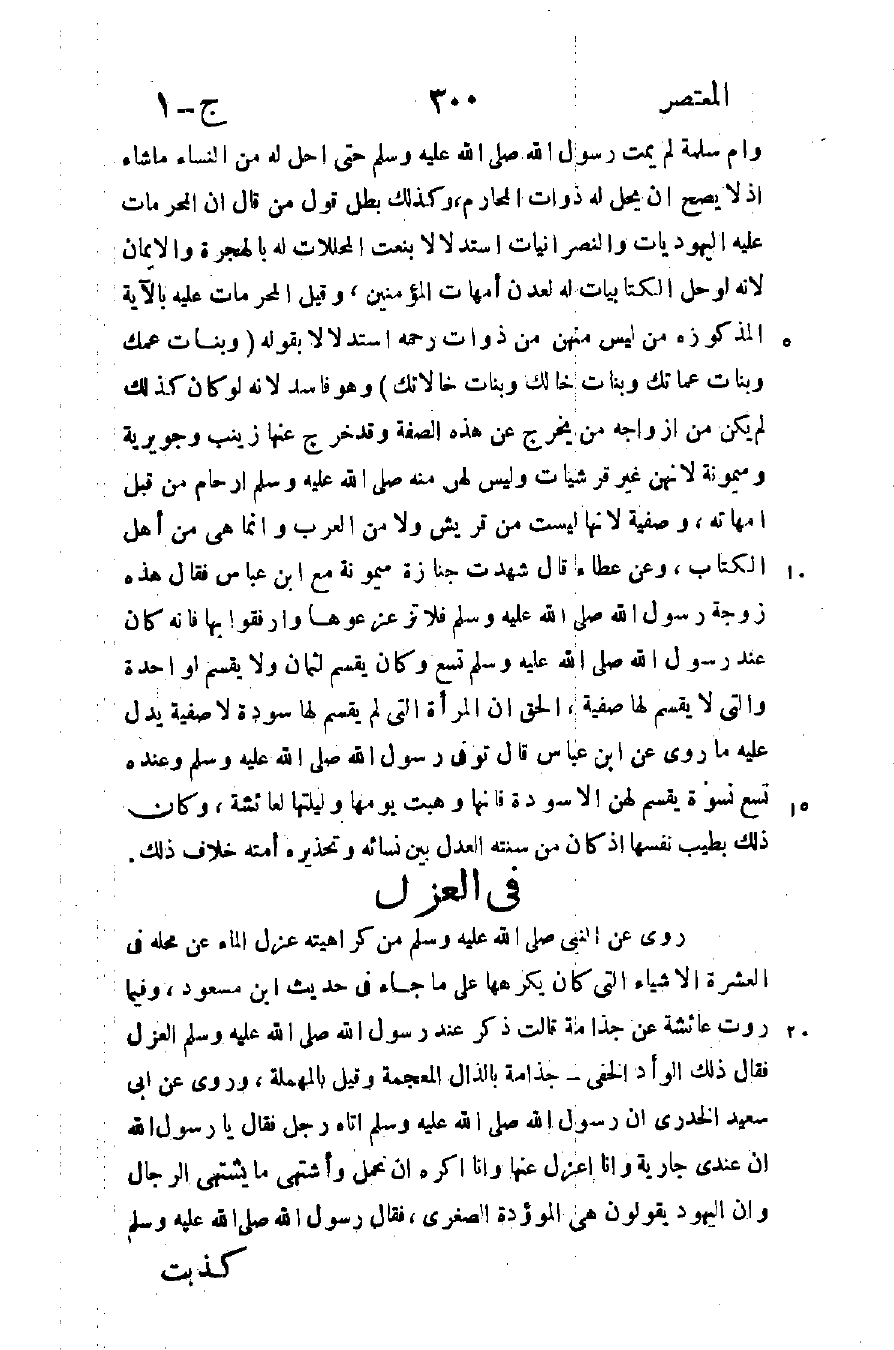 المعتصر ٣٠٠ ج-١
وام سلمة لم يمت رسول الله صلى الله عليه وسلم حتى احل له من النساء ماشاء
اذ لا يصح ان يحل له ذوات المحارم، وكذلك بطل قول من قال ان المحرمات
عليه اليهوديات والنصرانيات استدلالا بنعت المحللات له بالهجرة والايمان
لانه لو حل الكتابيات له لعدن أمهات المؤمنين، وقيل المحرمات عليه بالآية
المذكوره من ليس منهن من ذوات رحمه استدلالا بقوله (وبنات عمك ٥
وبنات عماتك وبنات خالك وبنات خالاتك) وهو فاسد لانه لو كان كذلك
لم يكن من ازواجه من يخرج عن هذه الصفة وقد خرج عنها زينب وجويرية
وميمونة لانهن غير قرشيات وليس لهن منه صلى الله عليه وسلم ارحام من قبل
امهاته، وصفية لانها ليست من قريش ولا من العرب وانما هى من أهل
الكتاب، وعن عطاء قال شهدت جنازة ميمونة مع ابن عباس فقال هذه ١٠
زوجة رسول الله صلى الله عليه وسلم فلا تزعزعوها وارفقوا بها فانه كان
عند رسول الله صلى الله عليه وسلم تسع وكان يقسم لثمان ولا يقسم لواحدة
والتى لا يقسم لها صفية، الحق ان المرأة التى لم يقسم لها سودة لا صفية يدل
عليه ما روى عن ابن عباس قال توفى رسول الله صلى الله عليه وسلم وعنده
تسع نسوة يقسم لهن الا سودة فانها وهبت يومها وليلتها لعائشة، وكان ١٥
ذلك بطيب نفسها اذ كان من سنته العدل بين نسائه وتحذيره أمته خلاف ذلك.
فى العزل
روى عن النبى صلى الله عليه وسلم من كراهيته عزل الماء عن محله فى
العشرة الاشياء التى كان يكرهها على ما جاء فى حديث ابن مسعود، وفيما
روت عائشة عن جذامة قالت ذكر عند رسول الله صلى الله عليه وسلم العزل ٢٠
فقال ذلك الوأد الخفى - جذامة بالذال المعجمة وقيل بالمهملة، وروى عن ابى
سعيد الخدرى ان رسول الله صلى الله عليه وسلم اتاه رجل فقال يا رسول الله
ان عندى جارية وانا اعزل عنها وانا اكره ان تحمل وأشتهى ما يشتهى الرجال
وان اليهود يقولون هى الموؤدة الصغرى، فقال رسول الله صلى الله عليه وسلم
كذبت